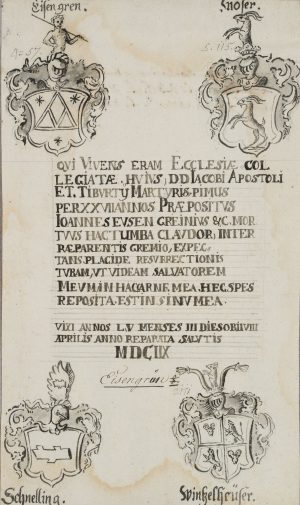 Eisengren.
Knoser.
QVI VIVENS ERAM ECCLESIÆ COL
LEGIATÆ HVIVS, DD IACOBI APOSTOLI
ET TIBURTY MARTYRIS PIMUS
PER XXVII ANNOS PRÆPOSITVS
IOANNES EVSEN GREINIVS &C. MOR
TVVS HAC TVMBA CLAVDOR; INTER
RÆ PARENTIS GREMIO, EXPEC
TANS, PLACIDE RESVRRECTIONIS
TVBAM, VT VIDEAM SALVATOREM
MEVM IN HAC CARNE MEA. HEC SPES
REPOSITA EST IN SINV MEA.
VIXI ANNOS LV MENSES III DIES OBII VIII
APRILIS ANNO REPARATA SALVTIS
MDCIIX
Eisengrün
Schnelling.
Winkelheüser.